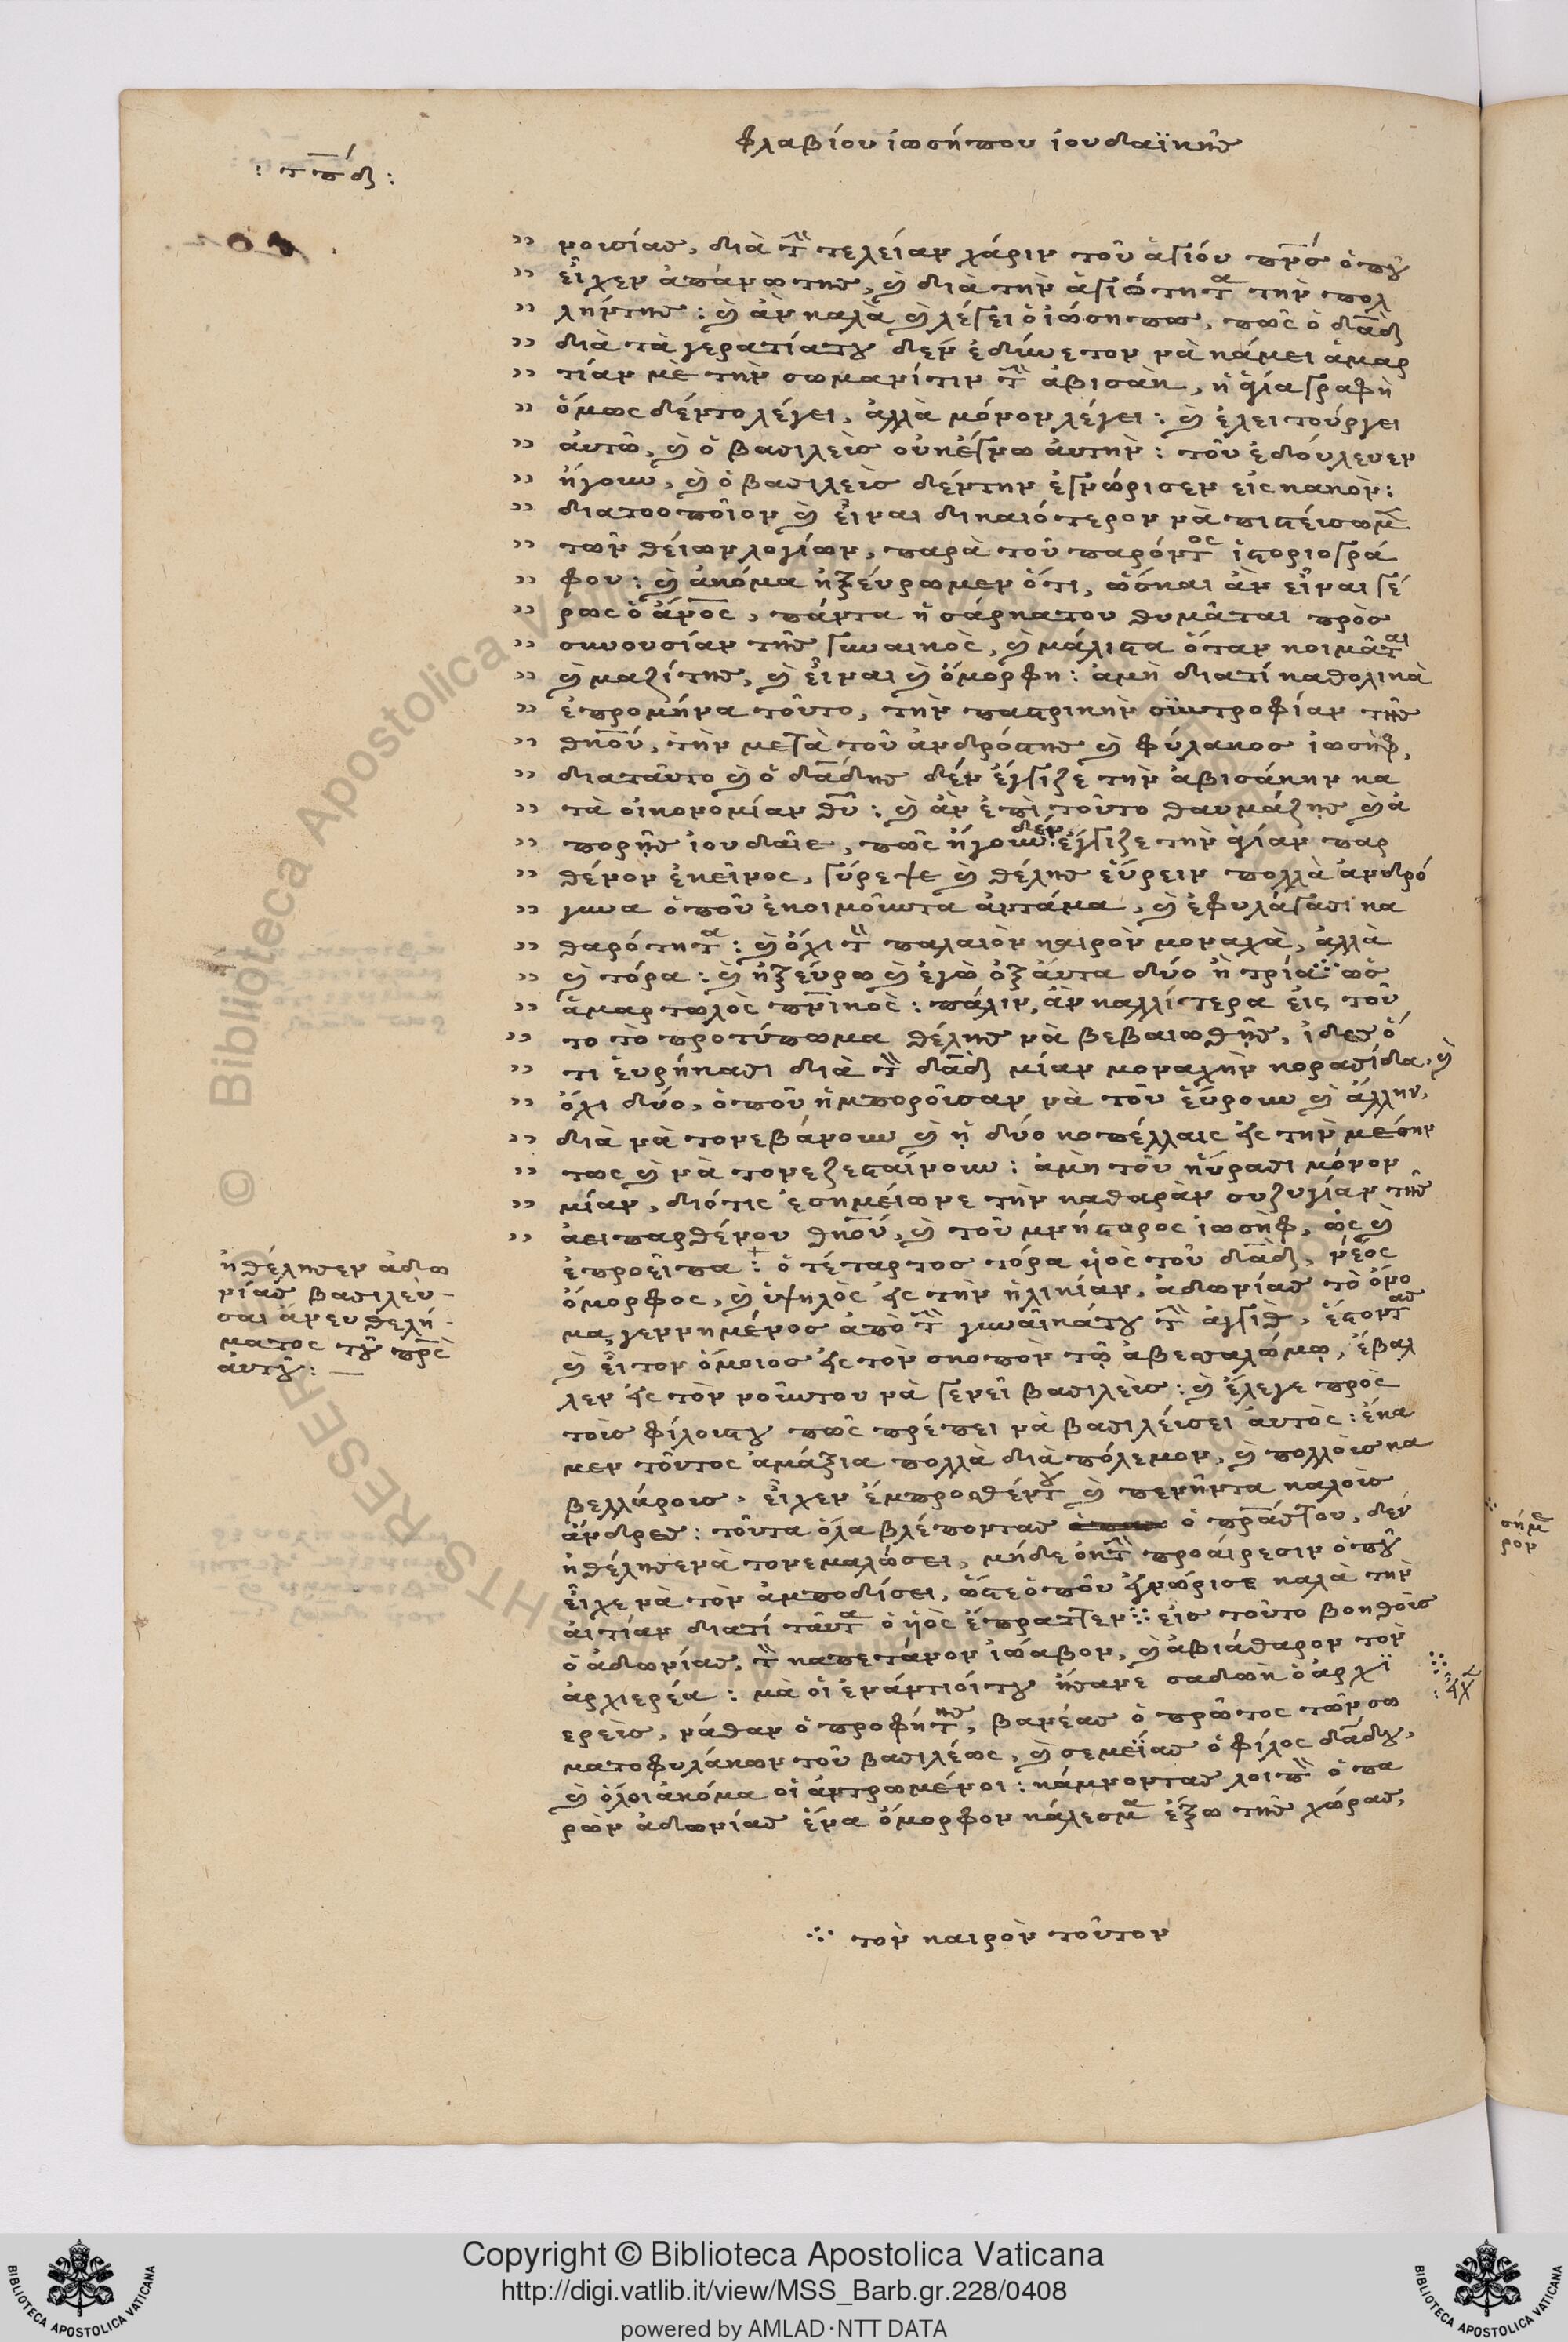 φλαβίου ἰωσήπου ἰουδαϊκῆς
: τπδ :
κοισίας, διὰ τὴν τελείαν χάριν τοῦ ἁγίου πνσ ὁποῦ
εἶχεν ἀπάνωτης, καὶ διὰ τὴν ἁγιότητα τὴν πολ
λήντης : καὶ ἀν καλὰ καὶ λέγει ὁ ἰώσηπος, πῶς ὁ δαδ
διὰ τὰ γερατίατου δὲν ἐδύνετον νὰ κάμει ἁμαρ
τίαν με τὴν σωμανίτιν τὴν ἀβισὰκ, ἡ ἁγία γραφὴ
ὅμως δέντο λέγει, ἀλλὰ μόνον λέγει : καὶ ἐλειτούργει
ἀυτῶ, καὶ ὁ βασιλεὺς οὐκἔγνω ἀυτὴν : τοῦ ἐδούλευεν
ἤγουν, καὶ ὁ βασιλεὺς δέντην ἐγνώρισεν εἰς κακὸν :
διατοοποῖον καὶ εἶναι δικαιότερον νὰ πιστέυσωμεν
τῶν θείων λογίων, παρὰ τοῦ παρόντος ἱστοριογρά
φου : καὶ ἀκόμα ἠξέυρωμεν ὅτι, ὥσκαι ἀν εἶναι γέ
ρως ὁ ἄνος, πάντα ἡ σάρκατου θυμᾶται πρὸς
συνουσίαν τῆς γυναικὸς, καὶ μάλιστα ὅταν κοιμᾶται
καὶ μαζίτης, καὶ εἶναι καὶ ὄμορφη : ἀμὴ διατί καθολικὰ
ἐπρομήνα τοῦτο, τὴν παστρικὴν συντροφίαν τῆς
θκου, τὴν μετὰ τοῦ ἀνδρόςτης καὶ φύλακος ἰωσὴφ,
διαταῦτο καὶ ὁ δαδης δὲν ἔγγιζε τὴν ἀβισάκην κα
τὰ οἰκονομίαν θυ : καὶ ἀν ἐπὶ τοῦτο θαυμάζης καὶ ἀ
πορῆς ἰουδαῖε, πῶς ἤγουν δεν ἔγγιζε τὴν ἁγίαν παρ
θένον ἐκεῖνος, γύρεψε καὶ θέλης εὕρειν πολλὰ ἀνδρό
γυνα ὁποῦ ἐκοιμοῦντα ἀντάμα, καὶ ἐφυλάγασι κα
θαρότητα : καὶ ὄχι τὸν παλαιὸν καιρὸν μοναχὰ, ἀλλὰ
καὶ τόρα : καὶ ἠξεύρω καὶ ἐγὼ ὀξἄυτα δύο ἢ τρία ⁘ ὡς
ἁμαρτωλὸς πνικὸς : πάλιν, ἀν καλλίτερα εἰς τοῦ
το τὸ προτύπωμα θέλης νὰ βεβαιωθῆς, ἰδες ὅ
τι ἑυρήκασι διὰ τὸν δαδ μίαν μοναχὴν κορασίδα, καὶ
ὄχι δύο, ὁποῦ ἠμποροῦσαν νὰ τοῦ ἕυρουν καὶ ἄλλην,
διὰ νὰ τονεβάνουν καὶ ἡ δύο κοπέλλαις εἰς τὴν μέσην
τως καὶ νὰ τονεζεσταίνουν : ἀμὴ τοῦ ηὕρασι μόνον
μίαν, διότις ἐσημείωνε τὴν καθαρὰν συζυγίαν τῆς
ἀειπαρθένου θκου, καὶ τοῦ μνήστορος ἰωσὴφ, ὡς καὶ
ἐπροεῖπα : ὁ τέταρτος τόρα υἱὸς τοῦ δαδ, νέος
ὄμορφος, καὶ ὑψηλὸς εἰς τὴν ἡλικίαν, ἀδωνίας τὸ ὄνο
μα, γεννημένος ἀπὸ τὴν γυναῖκάτου τὴν ἀγγὶθ, ἔστοντας
καὶ εἶτον ὅμοιος εἰς τὸν σκοπὸν τῷ ἀβεσαλώμῳ, ἔβαλ
λεν εἰς τὸν νοῦντου νὰ γενεῖ βασιλεὺς : καὶ ἔλεγε πρὸς
τοὺς φίλουςτου πῶς πρέπει νὰ βασιλέυσει ἀυτὸς : ἔκα
μεν τοῦτος ἀμάξια πολλὰ διὰ πόλεμον, καὶ πολλοὺς κα
βελλάρους, εἶχεν ἔμπροσθέντου καὶ πενῆντα καλοὺς
ἄνδρες : τοῦτα ὅλα βλέποντας ὁ πρασ̅του, δὲν
ἠθέλησενὰ τονεμαλώσει, μήδε ὀκ τὴν προάιρεσιν ὁποῦ
εἶχε νὰ τὸν ἀμποδίσει, ὥστεὁποῦ ἐγνώρισε καλὰ τὴν
ἀιτίαν διατί ταῦτα ὁ υἱὸς ἔπραττεν ⁘ εἰς τοῦτο βοηθοὺς
ὁ ἀδωνίας, τὸν καπετάνον ἰώαβον, καὶ ἀβιάθαρον τὸν
ἀρχιερέα : μὰ οἱ ἐνάντιοίτου ἤσανε σαδὼκ ὁ ἀρχϊ
ερεὺς, νάθαν ὁ προφήτης, βανέας ὁ πρῶτος τῶν σω
ματοφυλάκων τοῦ βασιλέως, καὶ σεμεΐας ὁ φίλος δαδου,
καὶ ὅλοι ἀκόμα οἱ ἀντρωμένοι : κάμνοντας λοιπὸν ὁ πα
ρὼν ἀδωνίας ἕνα ὄμορφον κάλεσμα ἔξω τῆς χώρας,
ἠθέλησεν ἀδω
νίας βασιλεῦ
σαι ἄνευ θελή
ματος τοῦ πρς
ἀυτοῦ : —
⁘ εἶχε
⁘ τὸν καιρὸν τοῦτον